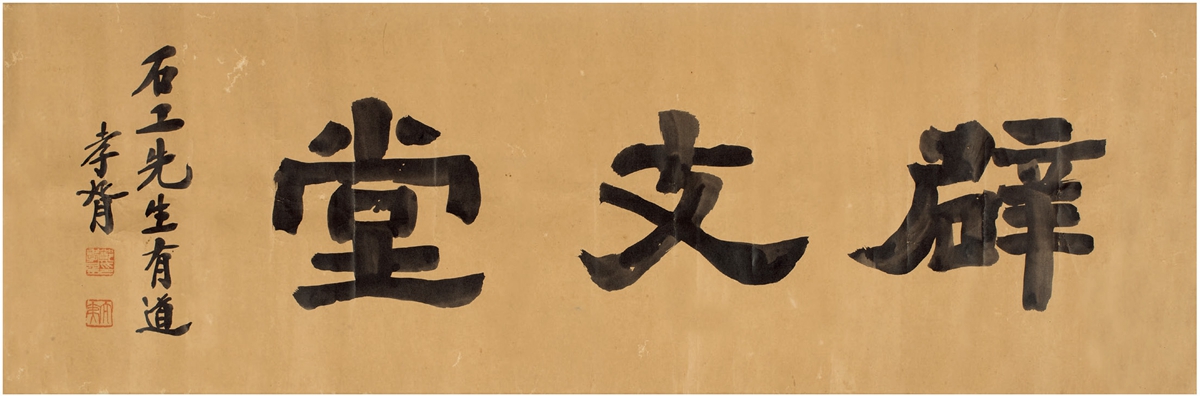 辟支堂
石工先生有道
孝胥